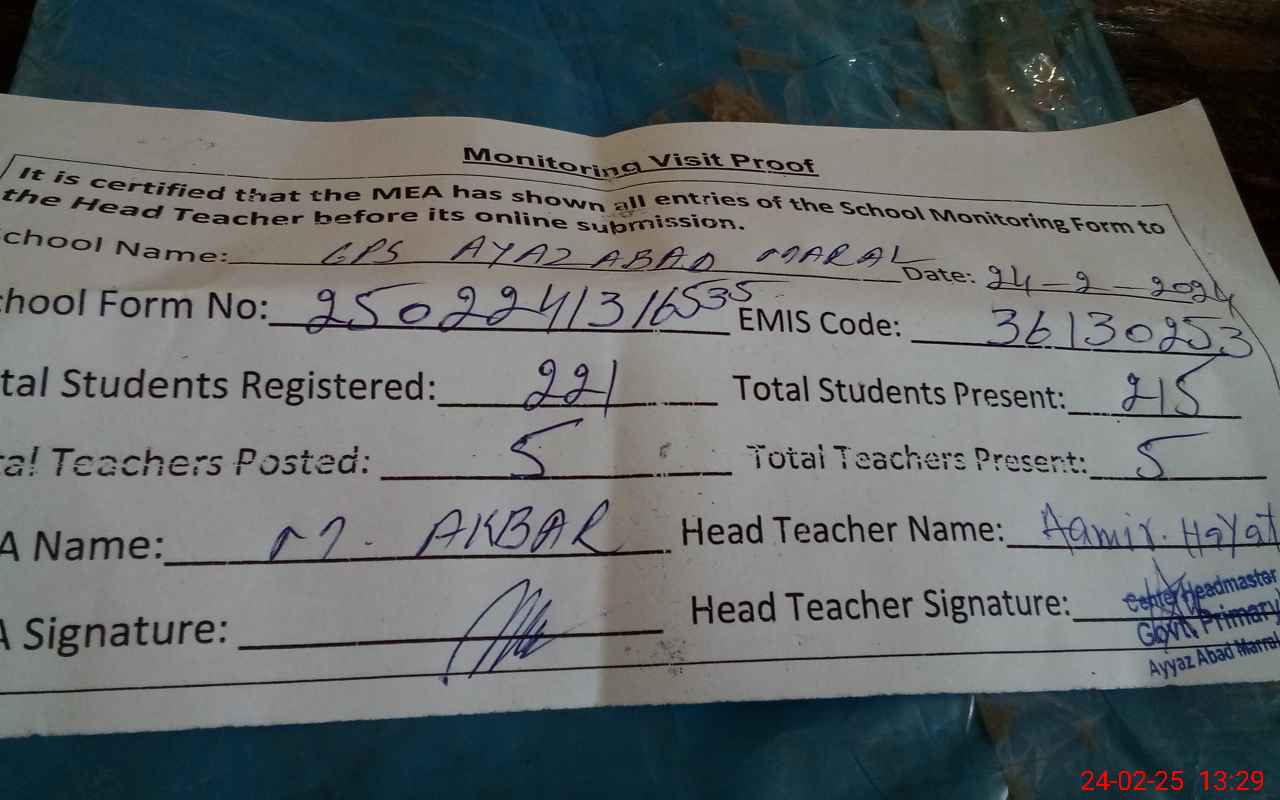 Monitoring Visit Proof
It is certified that the MEA has shown all entries of the School Monitoring Form to
the Head Teacher before its online submission.
chool Name: GPS AYAZ ABAD MARAL Date: 24-2-2024
hool Form No: 25022241316535 EMIS Code: 36130253
tal Students Registered: 221 Total Students Present: 215
al Teachers Posted: 5 Total Teachers Present: 5
A Name: M. AKBAR Head Teacher Name: Aamir. Hayat
A Signature: Head Teacher Signature:
Center Headmaster
Govt. Primary
Ayyaz Abad Marral
24-02-25 13:29